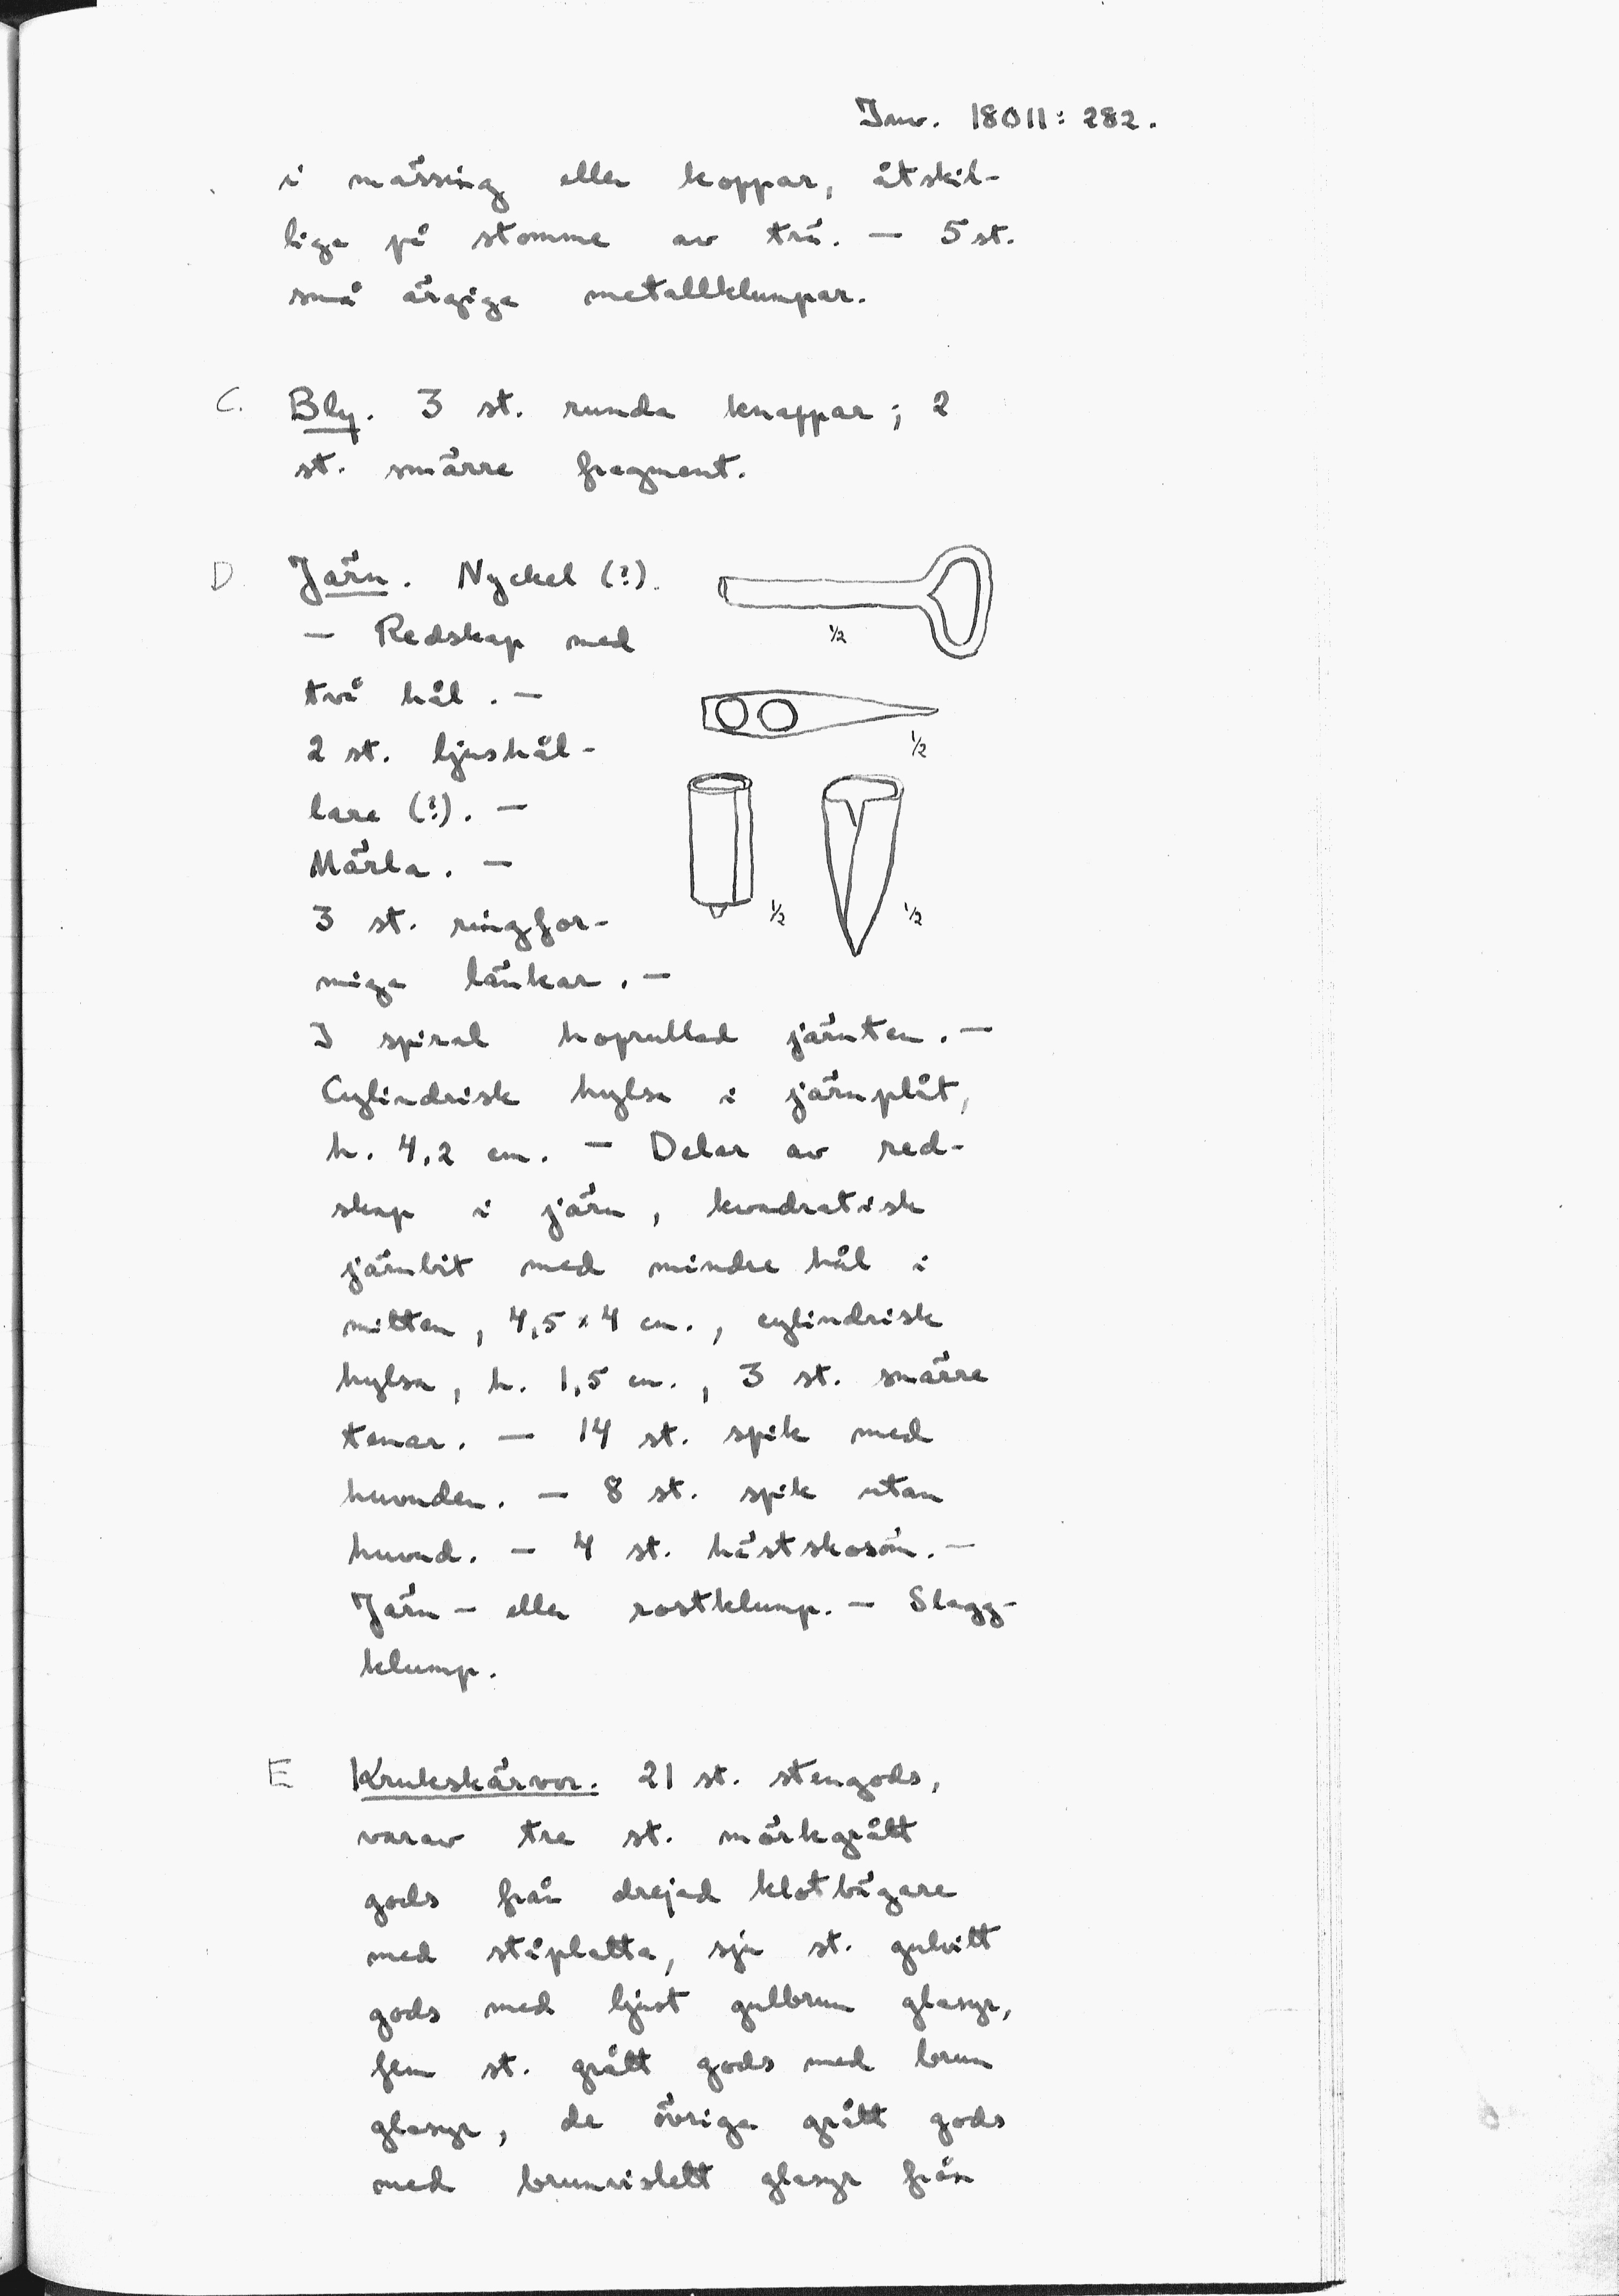 Inv. 18011: 282.
i mässing eller koppar, åtskil-
liga på stomme av trä. — 5 st.
små ärgiga metallklumpar.
C. Bly. 3 st. runda knappar; 2
st. smärre fragment.
D. Järn. Nyckel (?).
— Redskap med
1/2
två hål. —
2 st. ljushål-
1/2
lare (?). —
Märla. —
3 st. ringfor-
1/2 1/2
miga länkar. —
I spiral hoprullad järnten. —
Cylindrisk hylsa i järnplåt,
h. 4,2 cm. — Delar av red-
skap i järn, kvadratisk
järnbit med mindre hål i
mitten, 4,5 x 4 cm., cylindrisk
hylsa, h. 1,5 cm., 3 st. smärre
tenar. — 14 st. spik med
huvuden. — 8 st. spik utan
huvud. — 4 st. hästskosöm. —
Järn- eller rostklump. — Slagg-
klump.
E Krukskärvor. 21 st. stengods,
varav tre st. mörkgrått
gods från drejad klotbägare
med ståplatta, sju st. gulvitt
gods med ljust gulbrun glasyr,
fem st. grått gods med brun
glasyr, de övriga grått gods
med brunviolett glasyr från